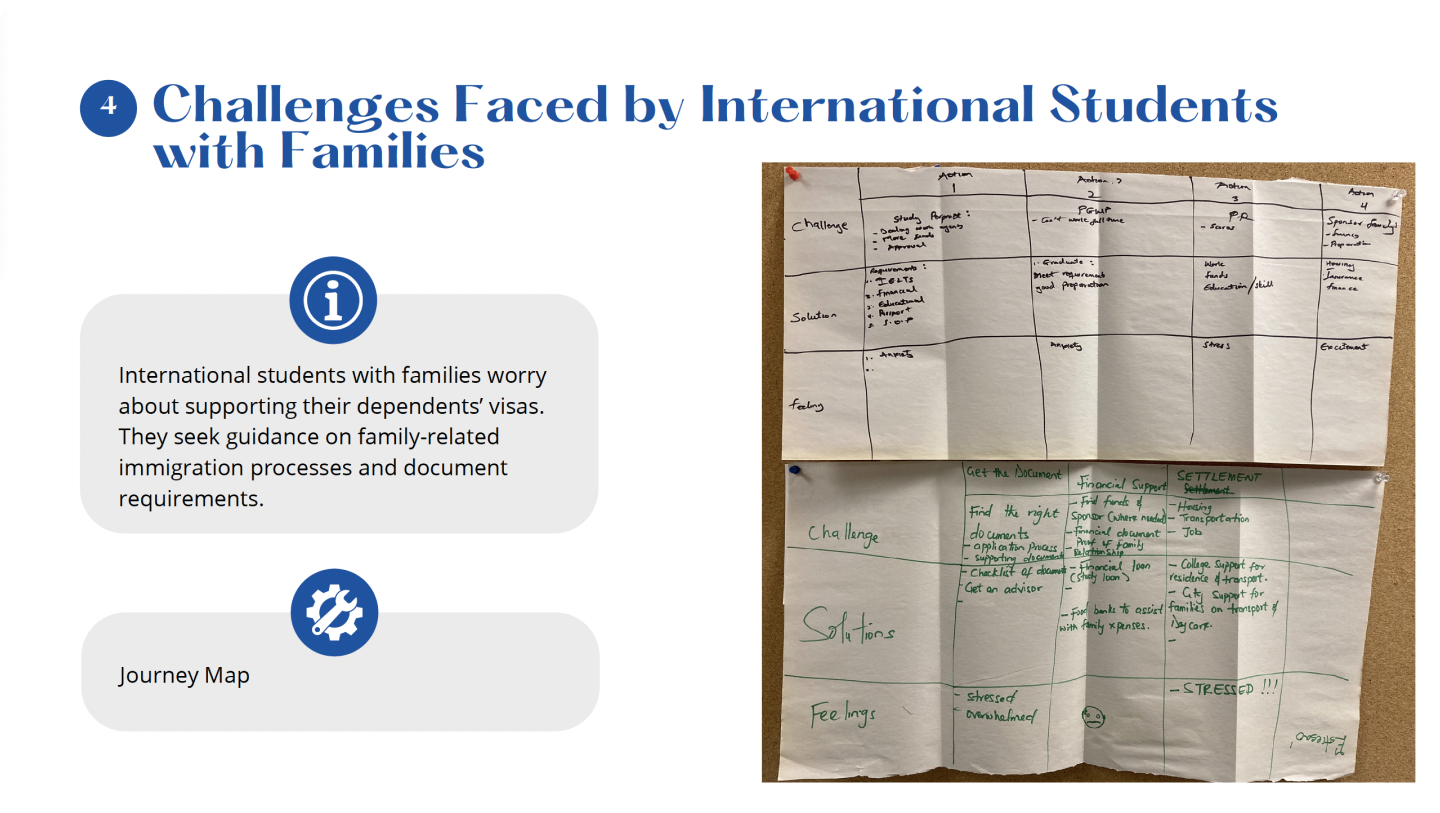 4
Challenges Faced by International Students
with Families
International students with families worry
about supporting their dependents’ visas.
They seek guidance on family-related
immigration processes and document
requirements.
Journey Map
Action
1
Action
2
Action
3
Action
4
Challenge
Study
:
- Dealing with agents
- More funds
- Approval
PGWP
- Can't work full time
PR
- Scores
Sponsor family
- Finances
- Preparation
Solution
Requirements :
1. IELTS
2. Financial
3. Educational
4. Passport
5. S.O.P
1. Graduate :
Meet requirements
good preparation
Work
funds
Education/skill
Housing
Insurance
finance
feeling
1. Anxiety
2.
Anxiety
Stress
Excitement
Get the Document
Financial Support
SETTLEMENT
Settlement
Challenge
Find the right
documents
- application process
- supporting document
- Find funds &
Sponsor (where needed)
- financial document
- Proof of family
Relationship
- Housing
- Transportation
- Job
Solutions
- Checklist of document
- Get an advisor
-
- Financial loan
(study loan)
-
- Food banks to assist
with family xpenses.
- College Support for
residence & transport.
- City Support for
families on transport &
Daycare.
-
Feelings
- stressed
- overwhelmed
- STRESSED !!!